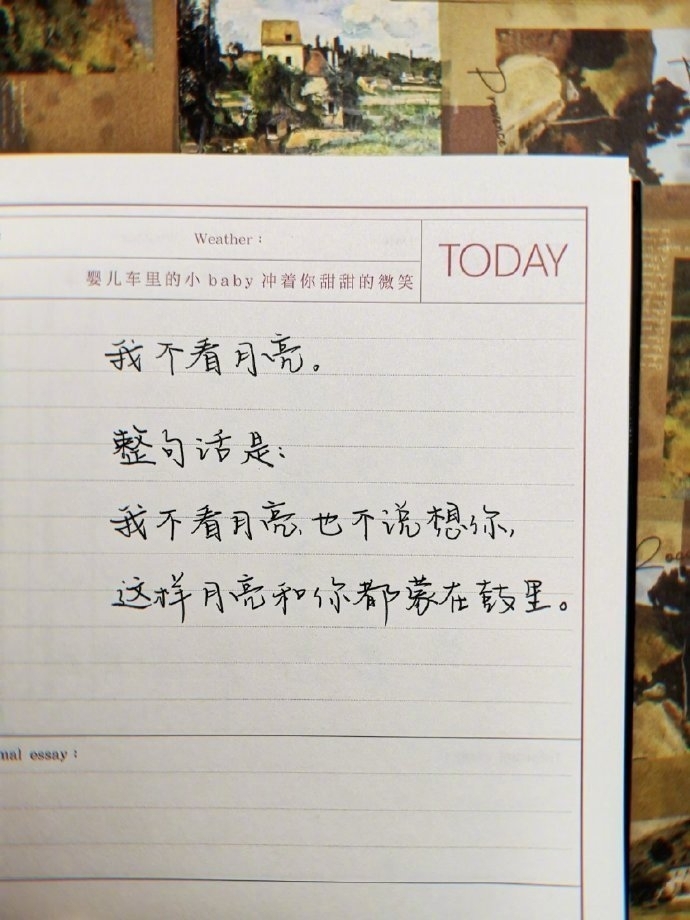 Weather：
TODAY
婴儿车里的小baby冲着你甜甜的微笑
我不看月亮。
整句话是：
我不看月亮、也不说想你，
这样月亮和你都蒙在鼓里。
nal essay：